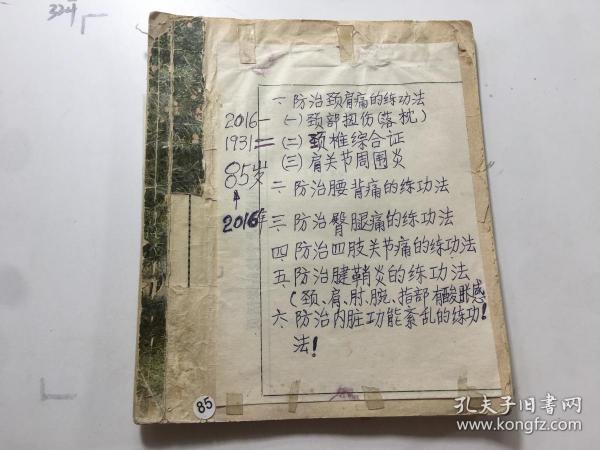 一 防治颈肩痛的练功法
(一) 颈部扭伤(落枕)
(二) 颈椎综合证
(三) 肩关节周围炎
二 防治腰背痛的练功法
三 防治臀腿痛的练功法
四 防治四肢关节痛的练功法
五 防治腱鞘炎的练功法
(颈、肩、肘、腕、指部有酸胀感
六 防治内脏功能紊乱的练功!
法!
2016—
1931=
85岁
2016年
85
孔夫子旧书网
www.kongfz.com